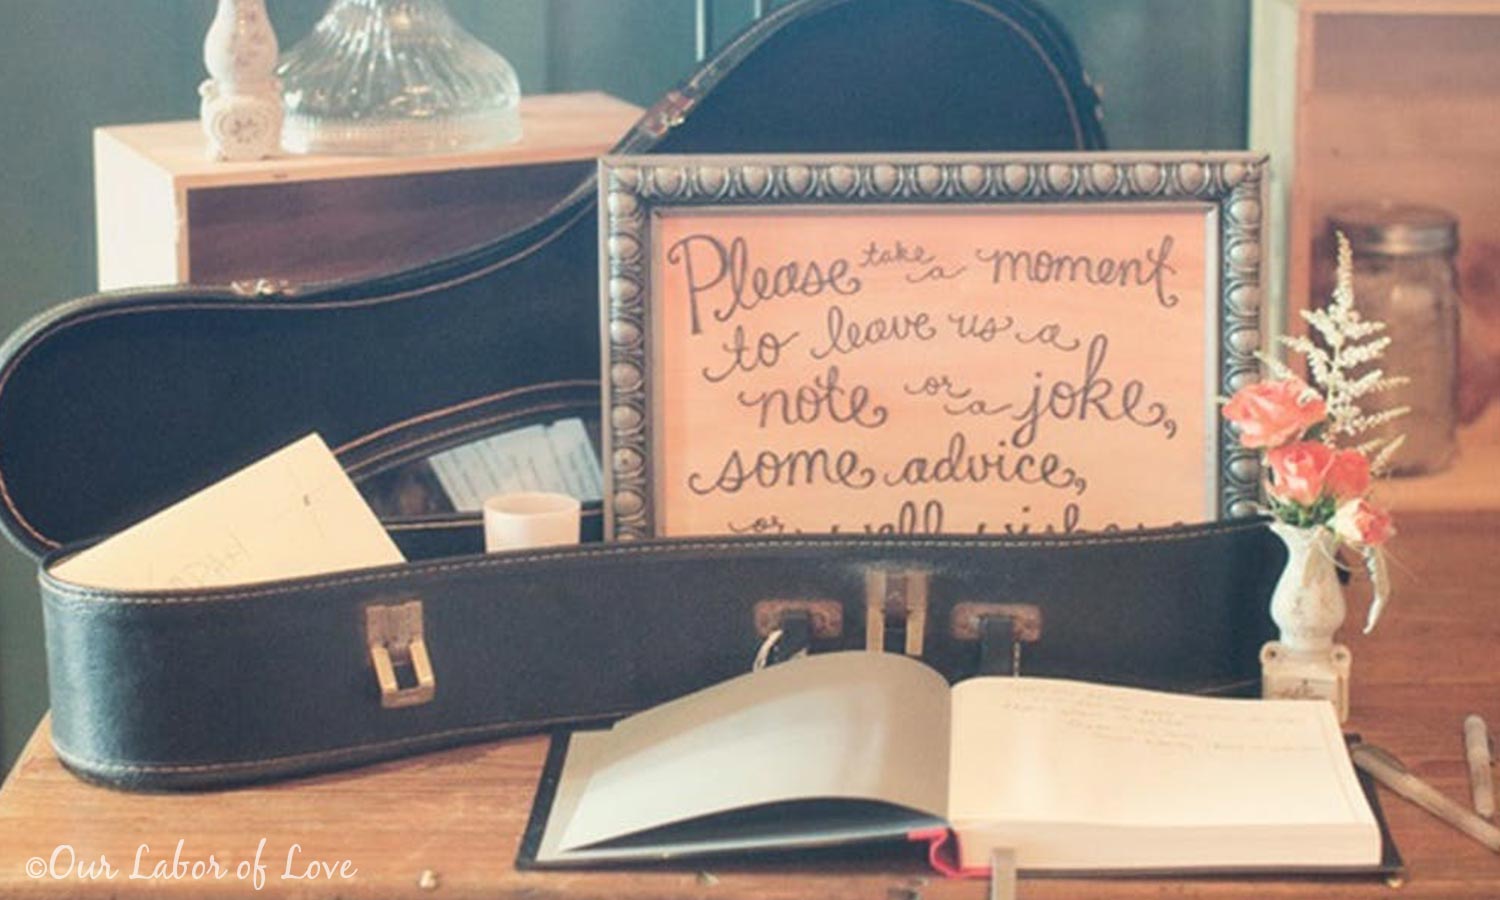 Please take a moment
to leave us a
note or a joke,
some advice,
or well wishes
©Our Labor of Love